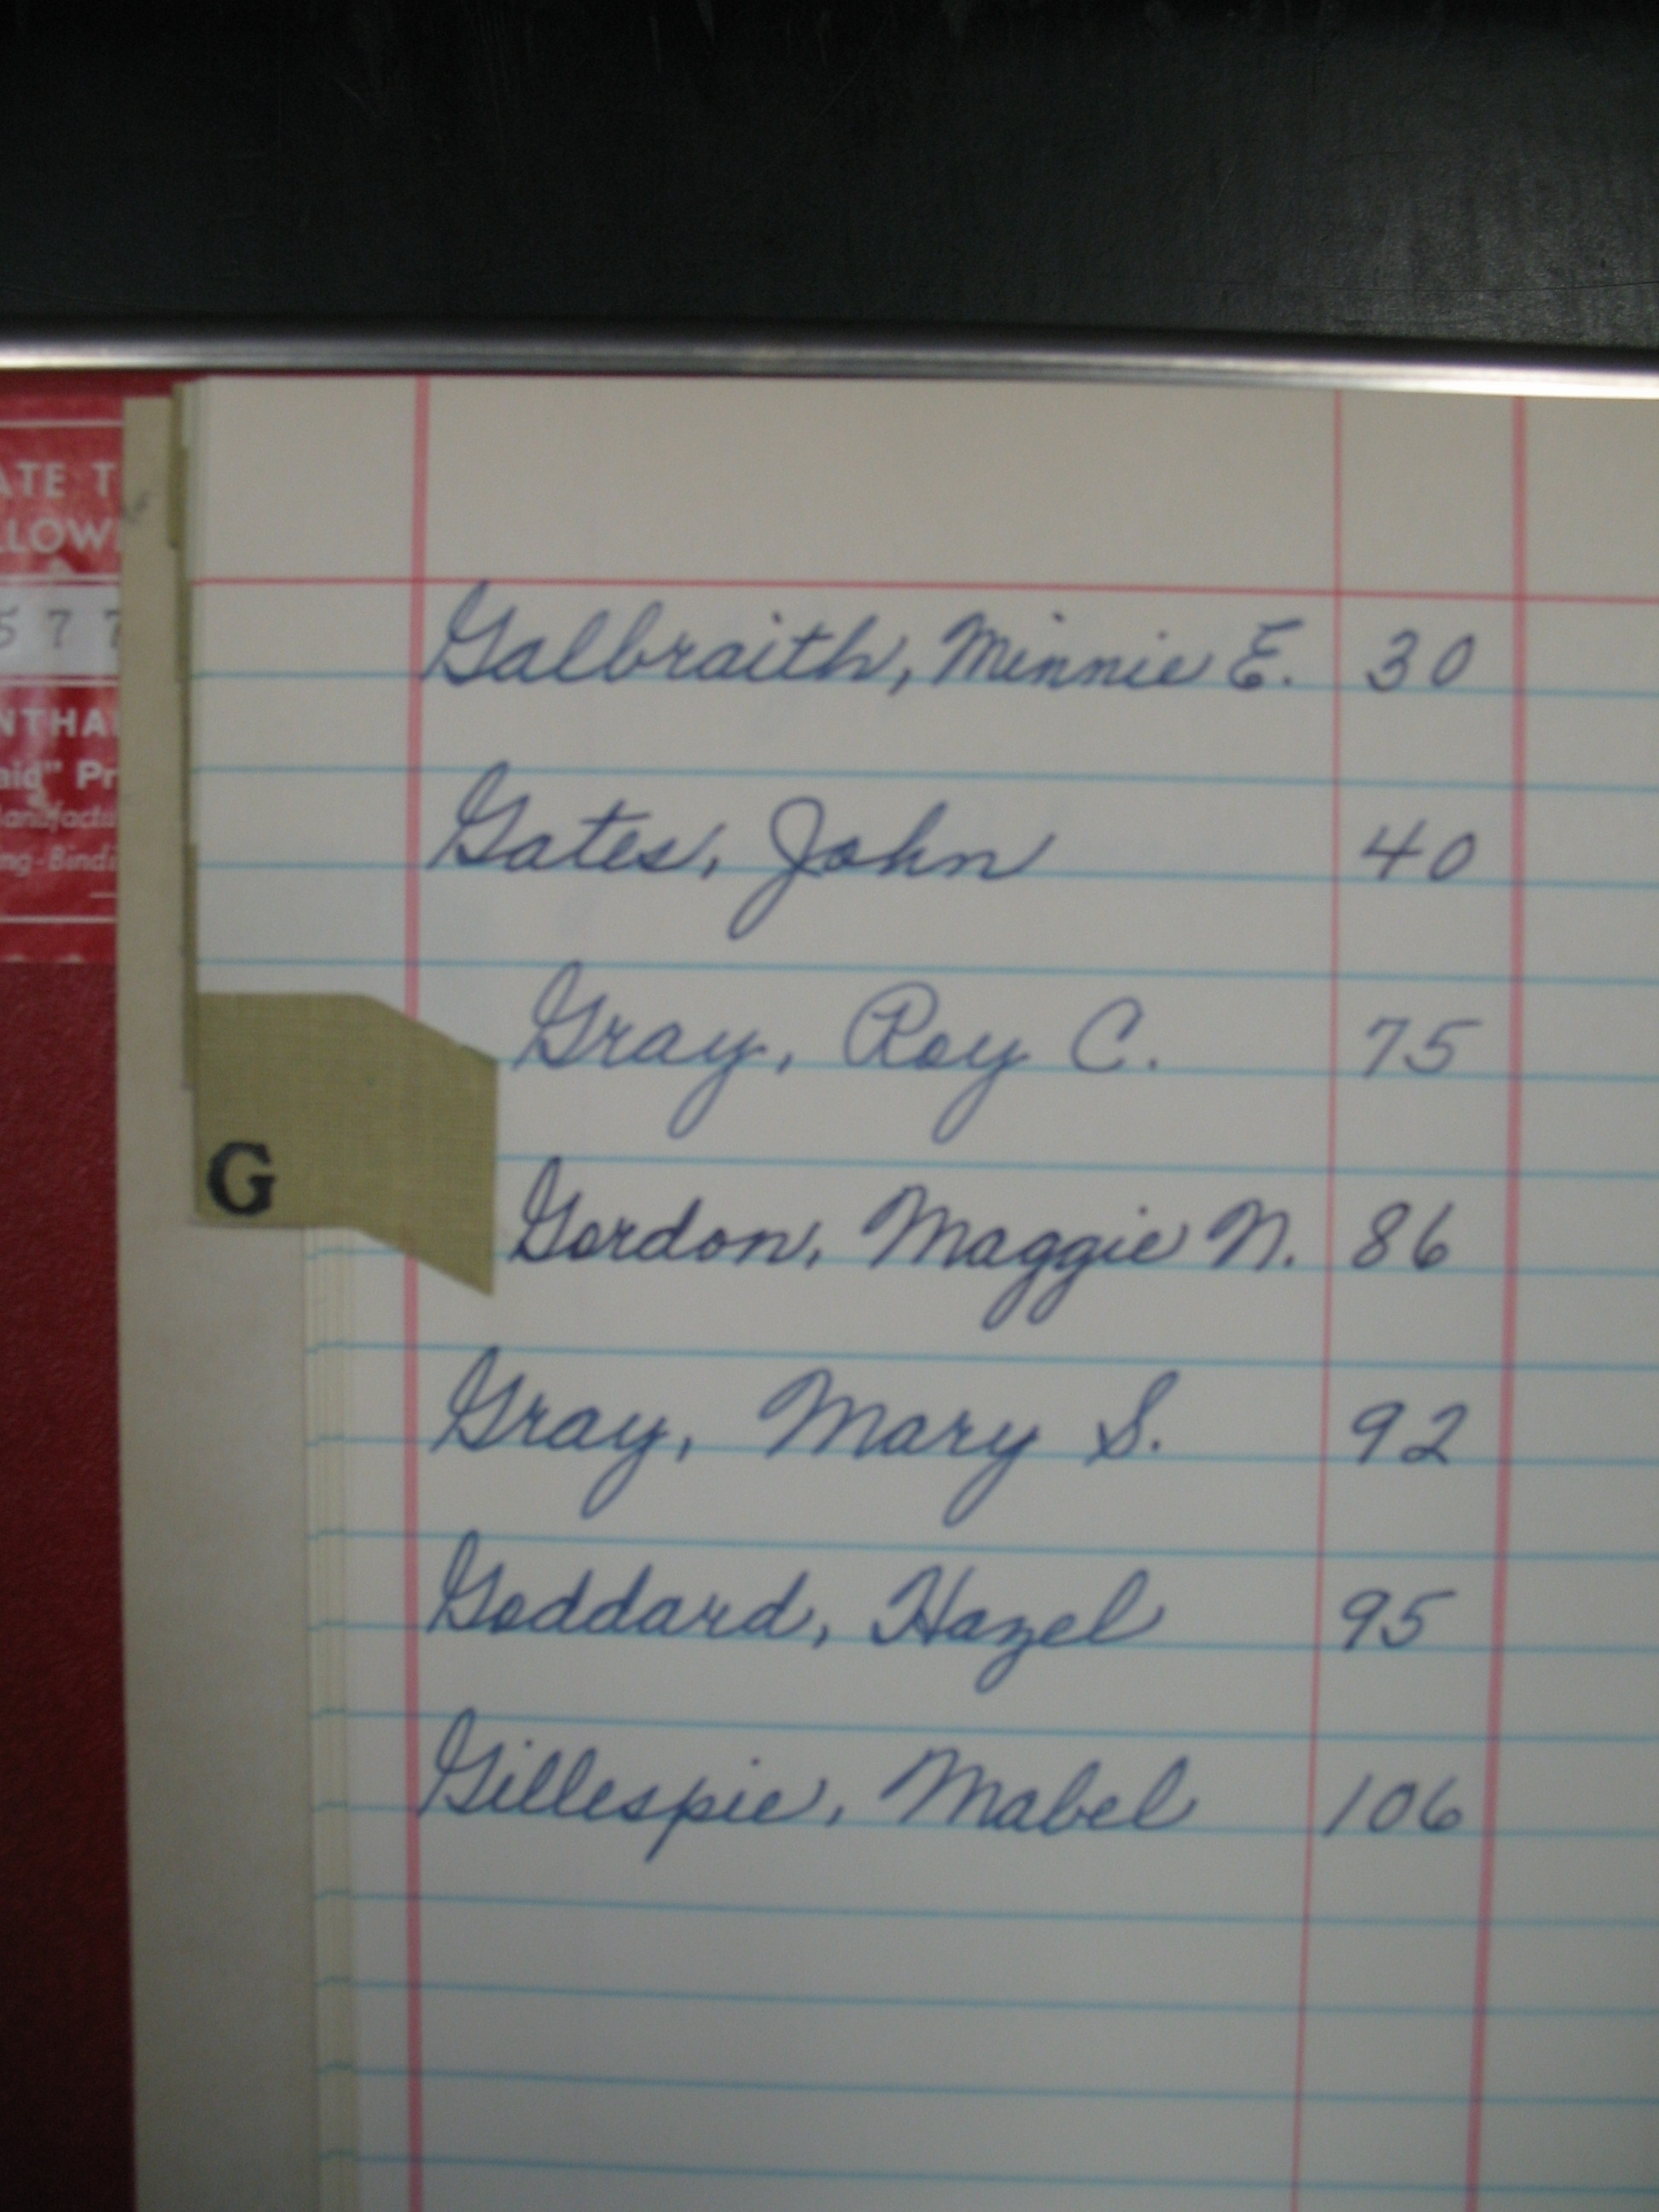 ATE T
LLOW
577
NTHA
aid" Pr
Manufactu
ing-Bindi
Galbraith, Minnie E. 30
Gates, John 40
Gray, Roy C. 75
G
Gordon, Maggie N. 86
Gray, Mary S. 92
Goddard, Hazel 95
Gillespie, Mabel 106